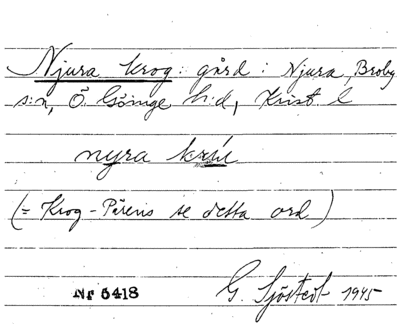 Njura krog: gård i Njura, Broby
s:n, Ö. Göinge h:d, Krist. l
nyra krúu
(= Krog-Pärens se detta ord)
Nr 5418 G. Sjöstedt 1945